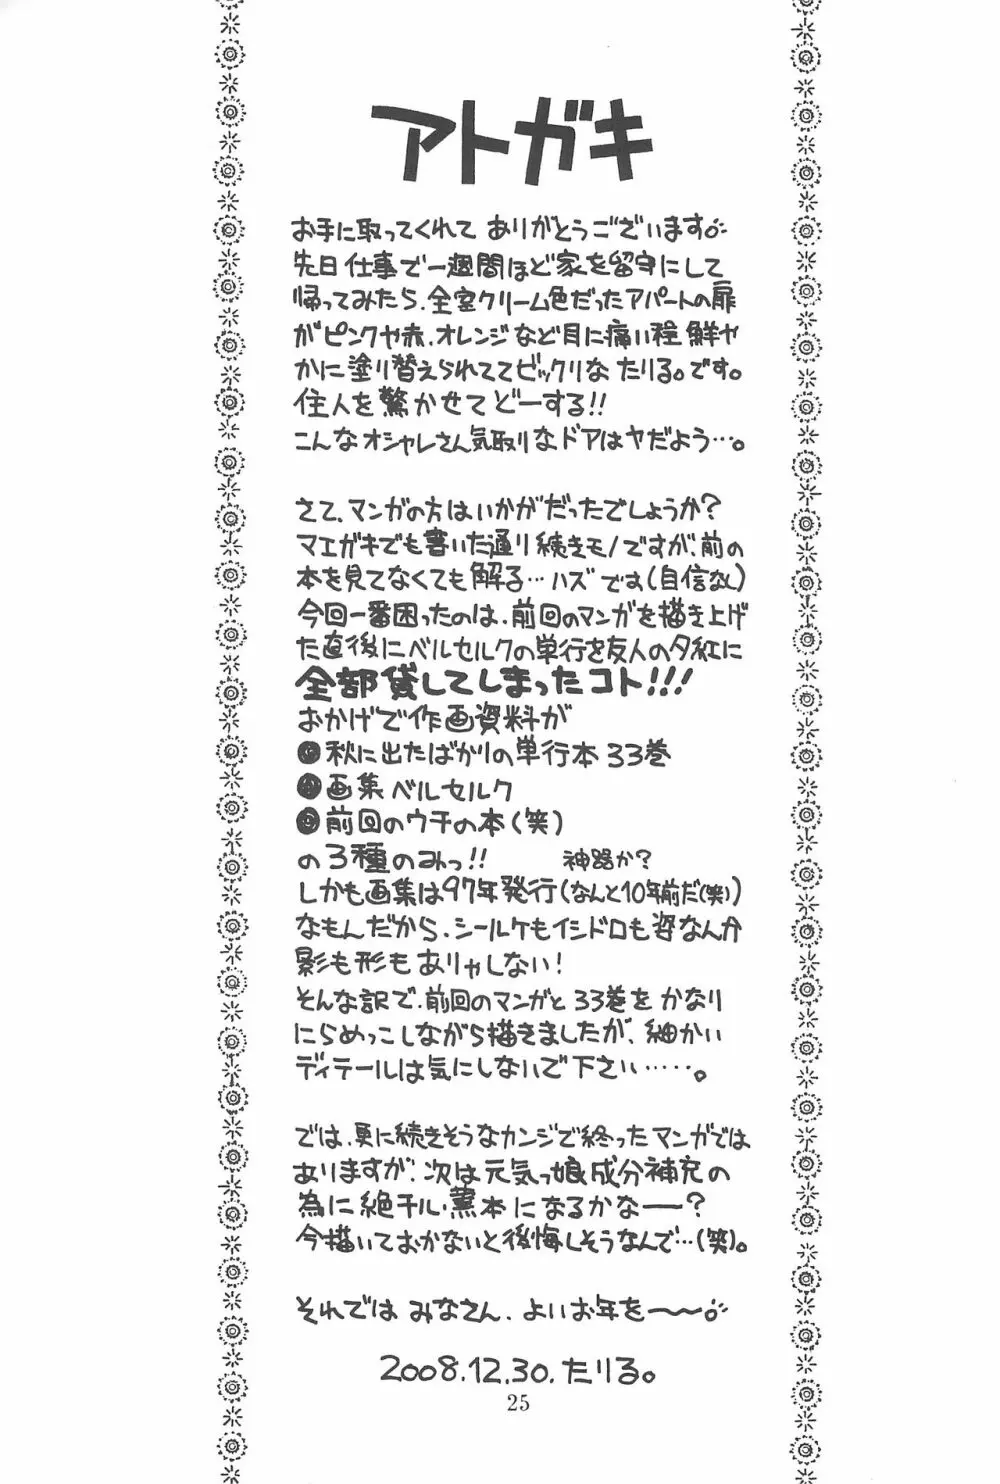 アトガキ
お手に取ってくれて ありがとうございます。
先日 仕事で一週間ほど家を留守にして
帰ってみたら、全室クリーム色だったアパートの扉
がピンクや赤、オレンジなど目に痛い程 鮮や
かに塗り替えられててビックリな たりる。です。
住人を驚かせてどーする!!
こんなオシャレさん気取りなドアはヤだよう…。
さて、マンガの方はいかがだったでしょうか?
マエガキでも書いた通り続きモノですが、前の
本を見てなくても解る…ハズです(自信なし)
今回一番困ったのは、前回のマンガを描き上げ
た直後にベルセルクの単行を友人の夕紅に
全部貸してしまったコト!!!
おかげで作画資料が
●秋に出たばかりの単行本33巻
●画集ベルセルク
●前回のウチの本(笑)
の3種のみっ!! 神器か?
しかも画集は97年発行(なんと10年前だ(笑))
なもんだから、シールケもイシドロも姿なんか
影も形もありゃしない!
そんな訳で、前回のマンガと33巻をかなり
にらめっこしながら描きましたが、細かい
ディテールは気にしないで下さい……。
では、更に続きそうなカンジで終ったマンガでは
ありますが、次は元気っ娘成分補充の
為に絶チル・薫本になるかなー?
今描いておかないと後悔しそうなんで…(笑)。
それでは みなさん、よいお年を〜〜
2008.12.30.たりる。
25